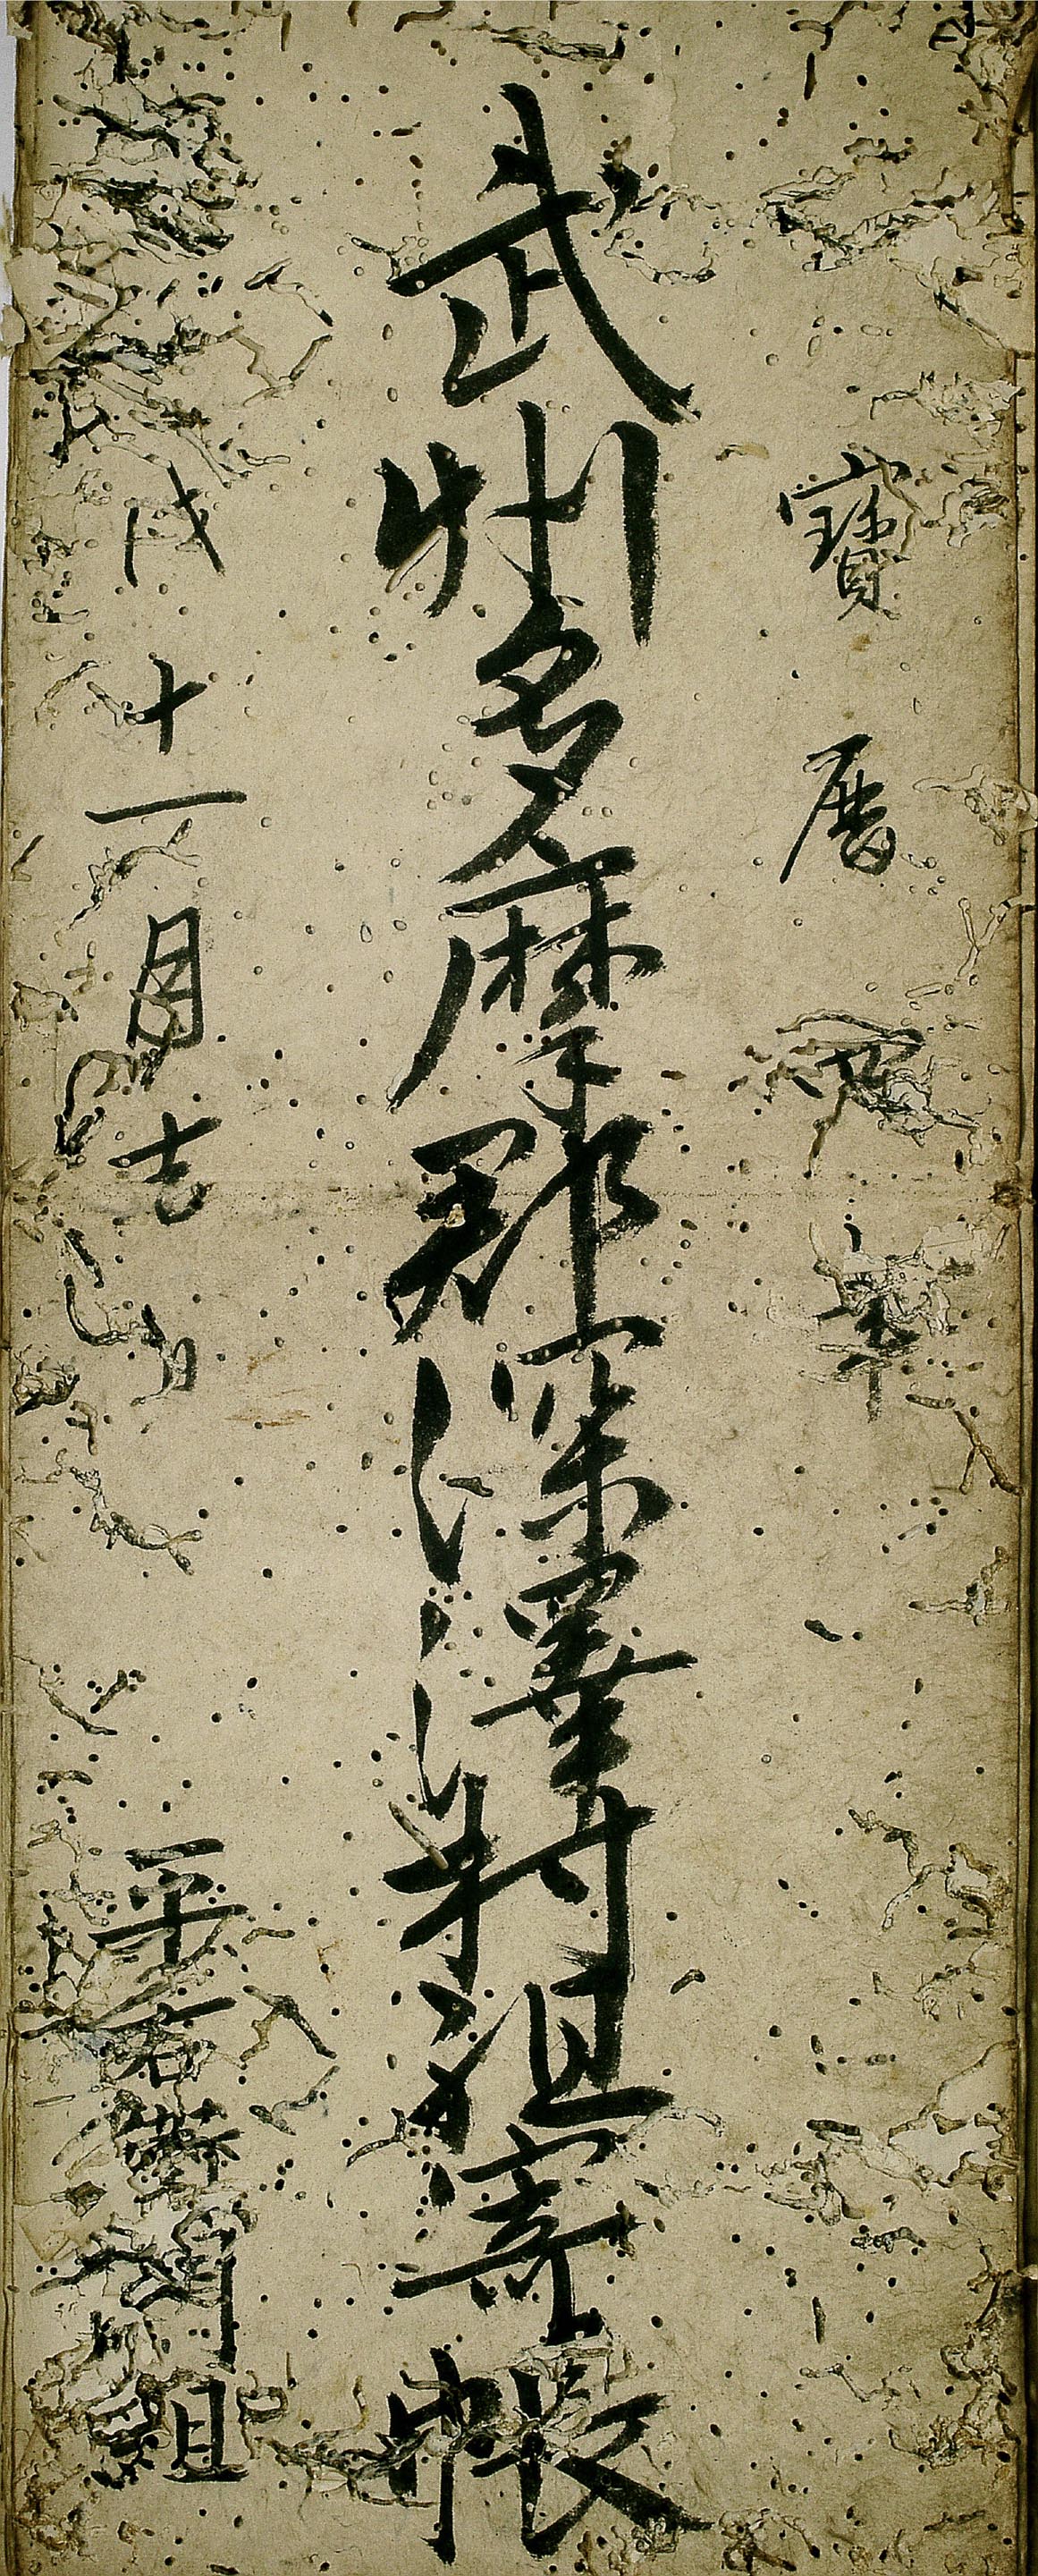 寳暦四年
武州多摩郡深澤村組寄帳
戌十一月吉日 平右衛門組